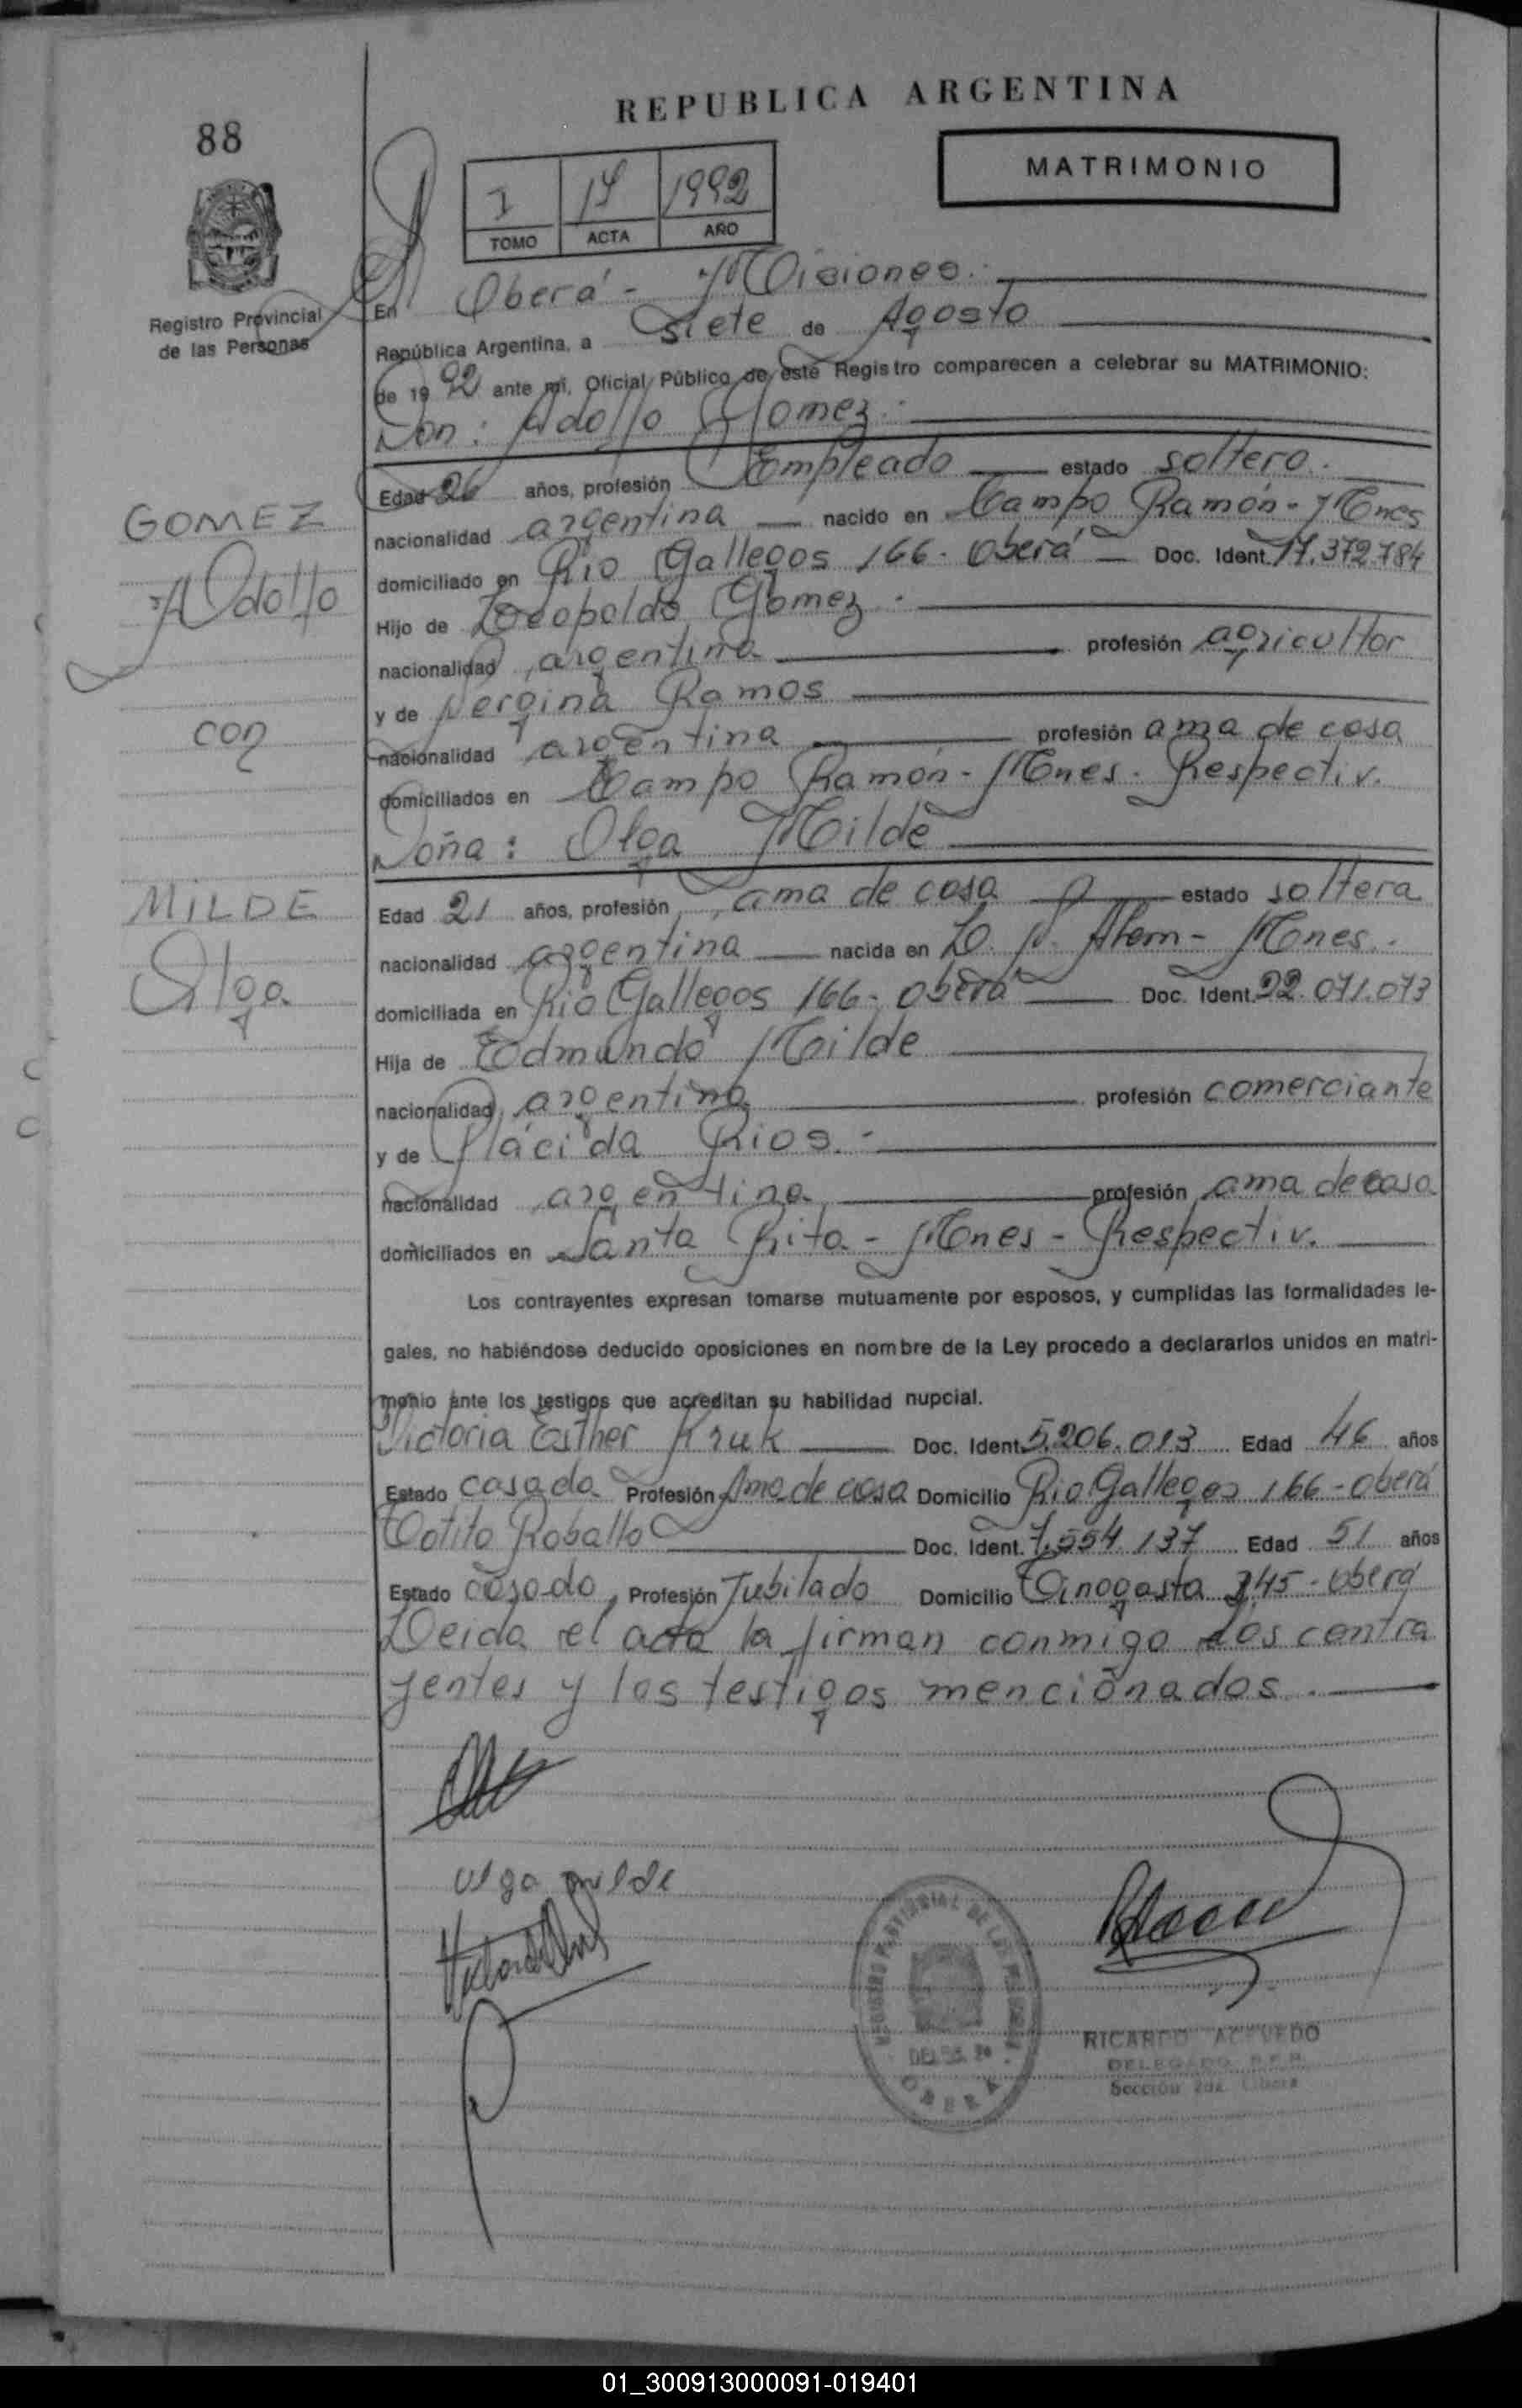 REPUBLICA ARGENTINA
88
MATRIMONIO
I 1992
TOMO ACTA AÑO
Registro Provincial
de las Personas
En Oberá - Misiones.
República Argentina, a siete de Agosto
de 1992 ante mí, Oficial Público de este Registro comparecen a celebrar su MATRIMONIO:
Don: Adolfo Gomez.
Edad 26 años, profesión Empleado estado soltero.
GOMEZ
nacionalidad argentina nacido en Campo Ramón - Mnes
domiciliado en Rio Gallegos 166 - Oberá Doc. Ident. 17.372.784
Adolfo
Hijo de Leopoldo Gomez.
nacionalidad argentina profesión agricultor
y de Nergina Ramos
con
nacionalidad argentina profesión ama de casa
domiciliados en Campo Ramón - Mnes. Respectiv.
Doña: Olga Milde
MILDE
Edad 21 años, profesión ama de casa estado soltera
nacionalidad argentina nacida en L. N. Alem - Mnes.
Olga
domiciliada en Rio Gallegos 166 - Oberá Doc. Ident. 22.071.073
Hija de Edmundo Milde
nacionalidad argentina profesión comerciante
y de Plácida Rios.
nacionalidad argentina profesión ama de casa
domiciliados en Santa Rita - Mnes - Respectiv.
Los contrayentes expresan tomarse mutuamente por esposos, y cumplidas las formalidades le-
gales, no habiéndose deducido oposiciones en nombre de la Ley procedo a declararlos unidos en matri-
monio ante los testigos que acreditan su habilidad nupcial.
Victoria Esther Kruk Doc. Ident. 5.206.013 Edad 46 años
Estado casada Profesión Ama de casa Domicilio Rio Gallegos 166 - Oberá
Totito Roballo Doc. Ident. 7.554.137 Edad 51 años
Estado casado, Profesión Jubilado Domicilio Tinogasta 345 - Oberá
Leida el acta la firman conmigo los contra
yentes y los testigos mencionados.
Olga Milde
REGISTRO PROVINCIAL DE LAS PERSONAS
OBERA
RICARDO ACEVEDO
DELEGADO R.P.P.
Sección 2da. Oberá
01_300913000091-019401